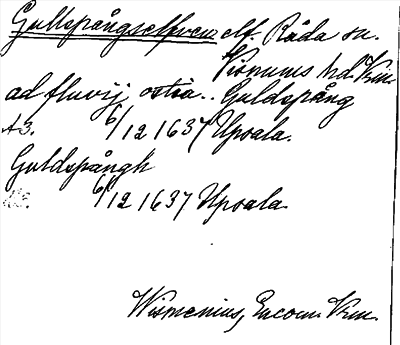 Gullspångselfven elf. Råda sn.
Visnums hd. Vrm.
ad fluvij ostia.. Guldspång
A3. 6/12 1637 Upsala.
Guldspångh
6/12 1637 Upsala.
Wismenius, Encom. Vrm.